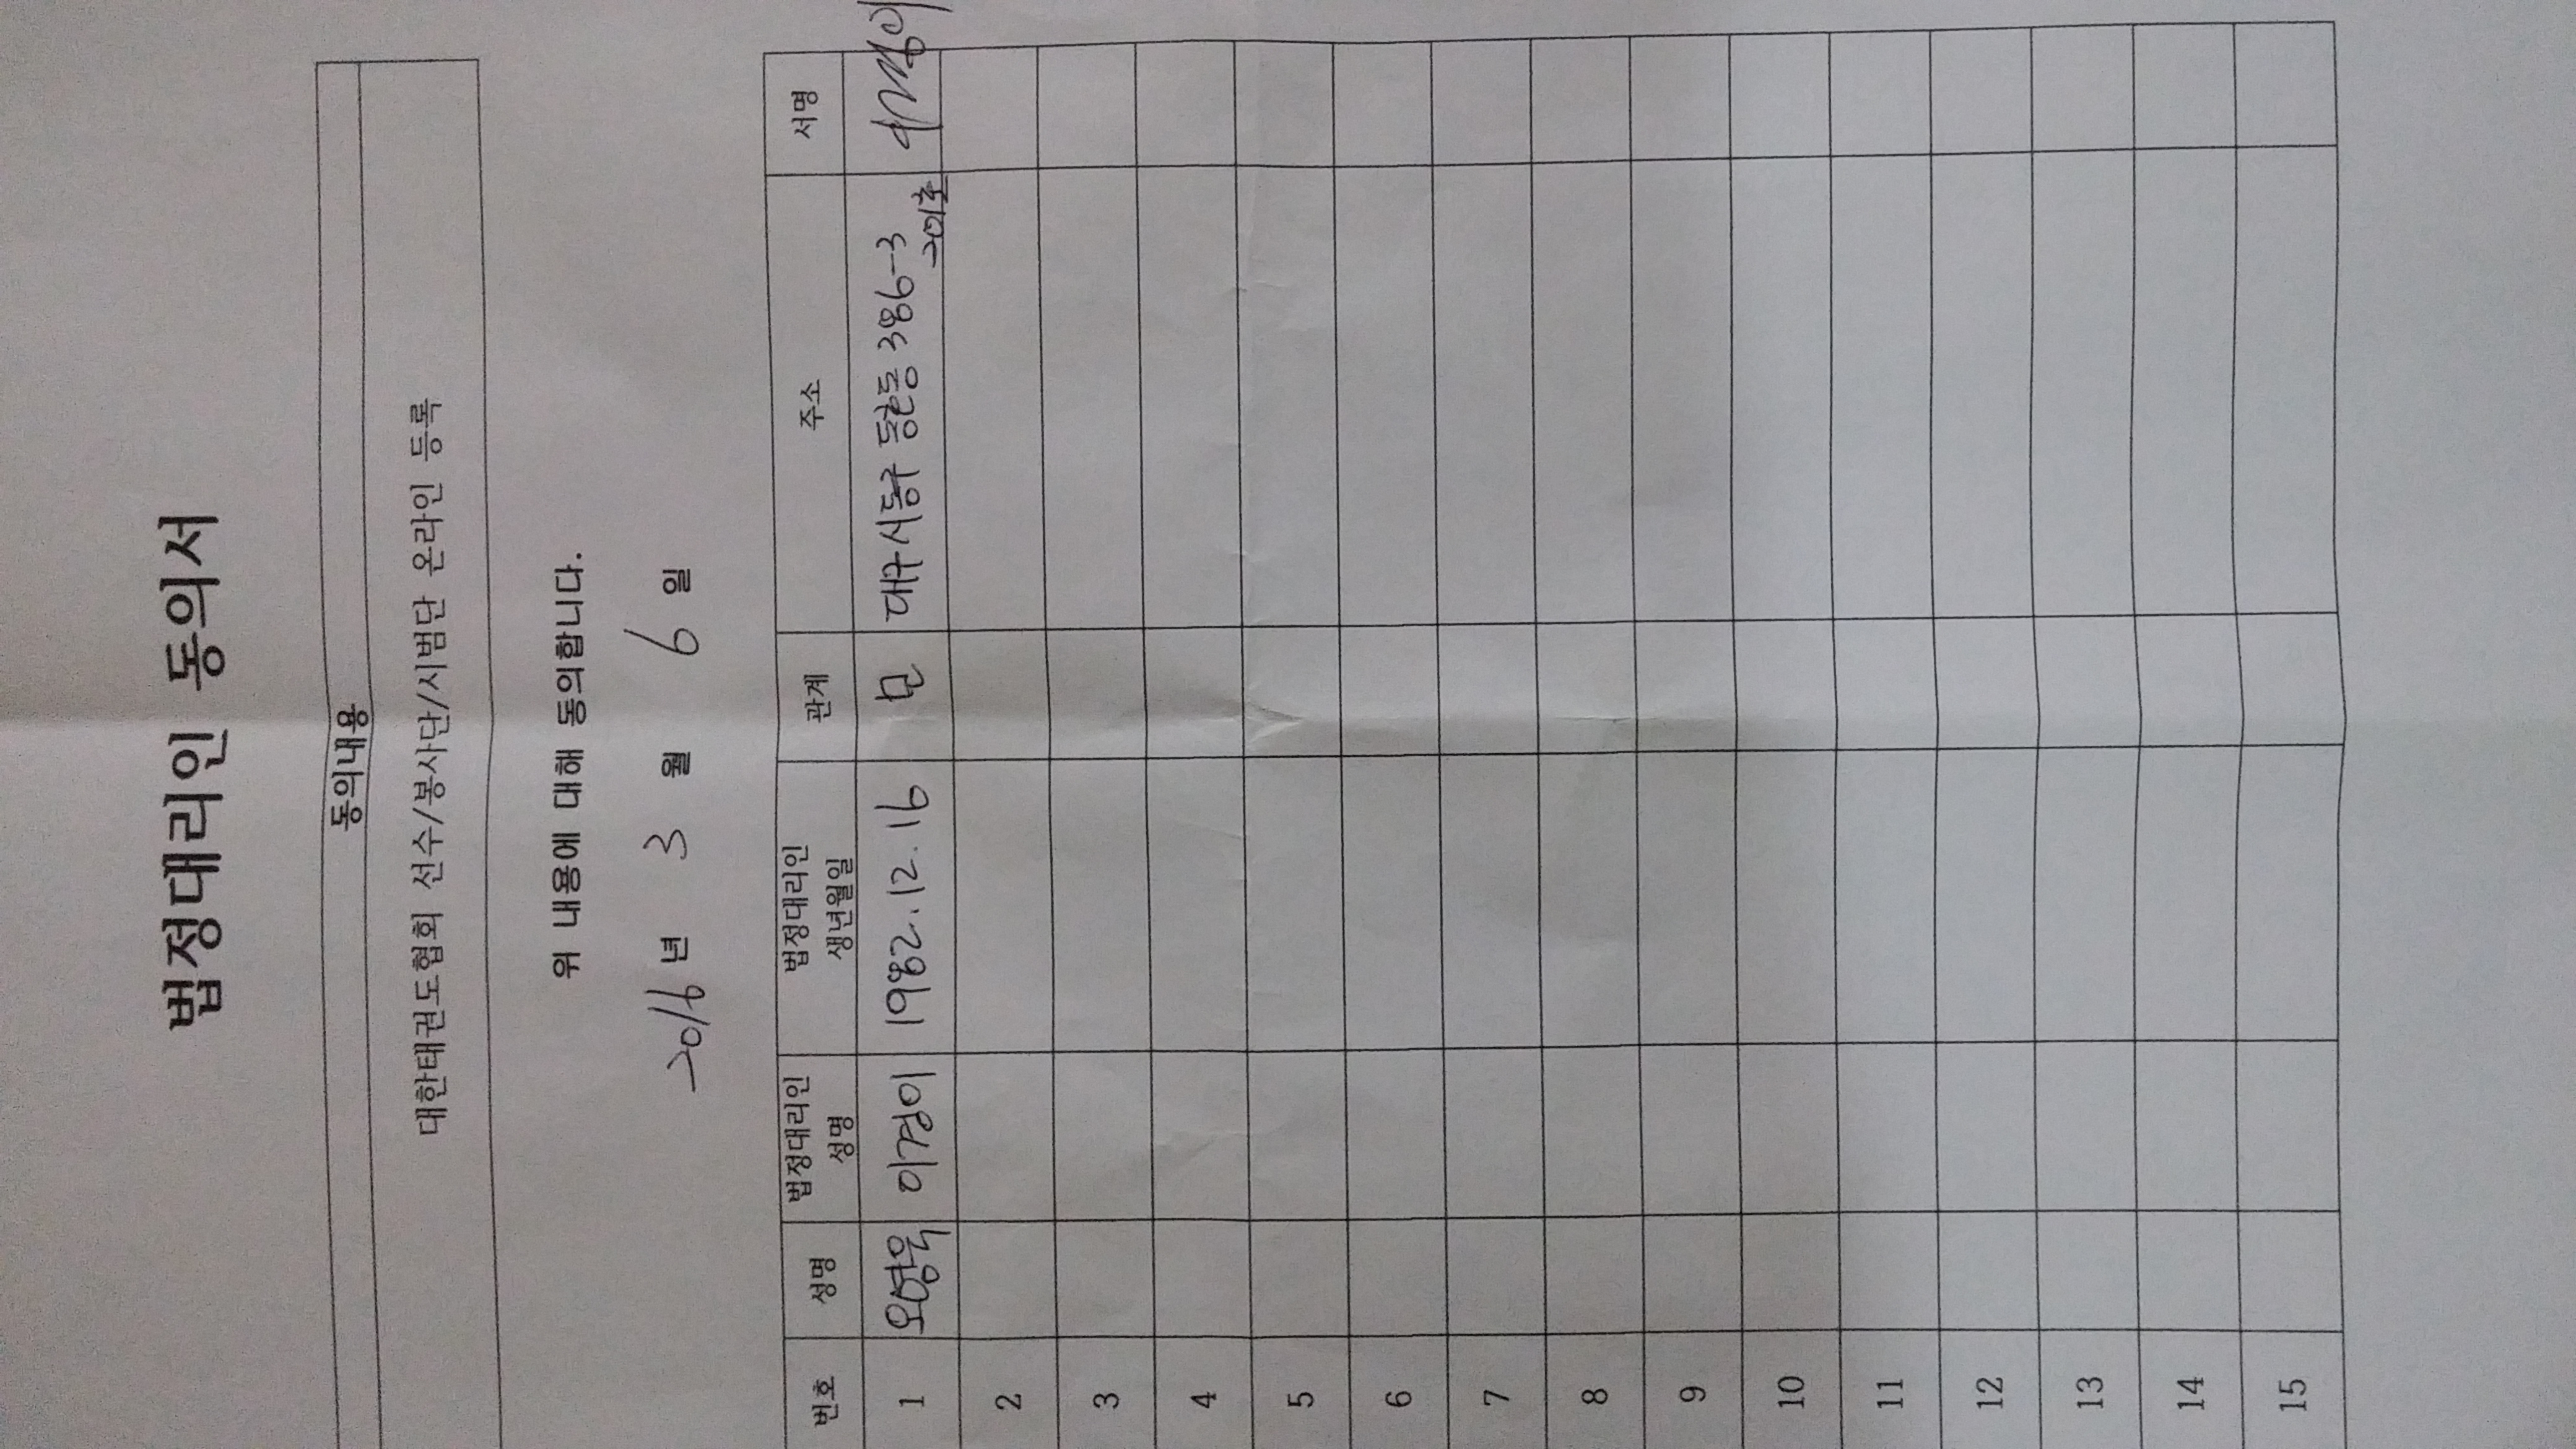 법정대리인 동의서
동의내용
대한태권도협회 선수/봉사단/시범단 온라인 등록
위 내용에 대해 동의합니다.
2016 년 3 월 6 일
번호 성명 법정대리인 성명 법정대리인 생년월일 관계 주소 서명
1 오영욱 이경이 1982.12.16 모 대구시동구 386-3 201호
2
3
4
5
6
7
8
9
10
11
12
13
14
15